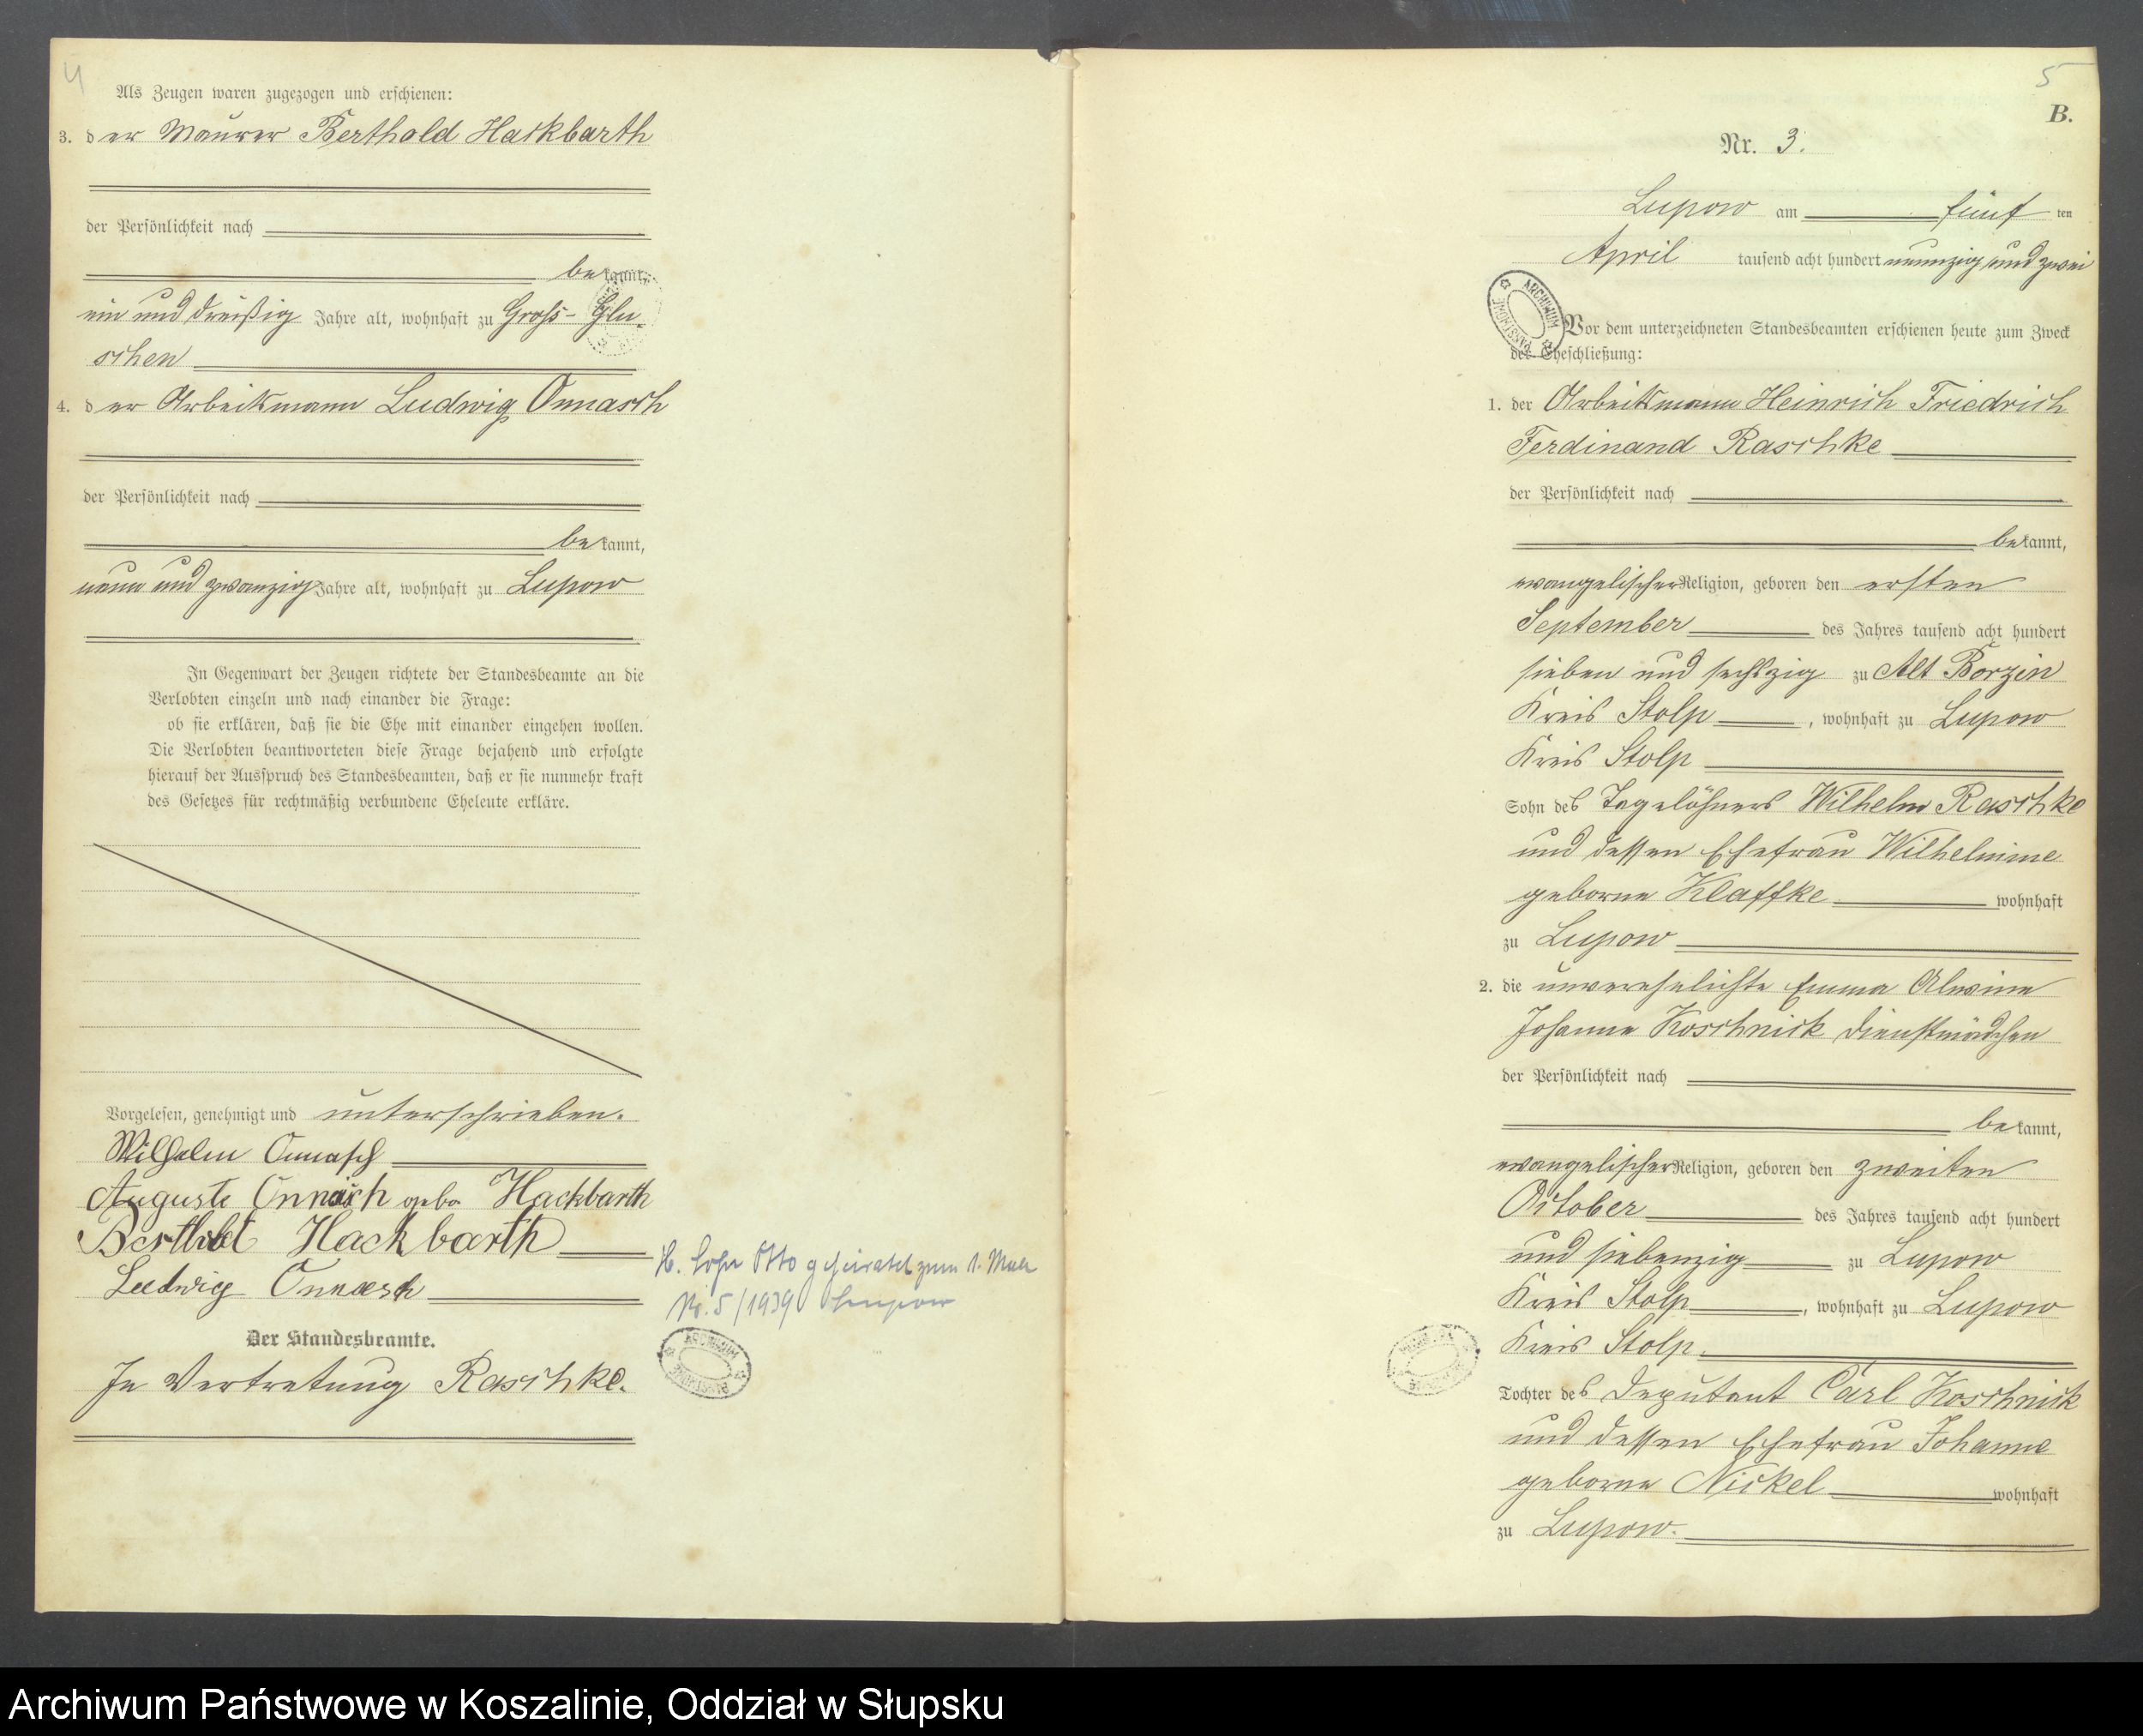 4
Als Zeugen waren zugezogen und erschienen:
3. der Maurer Berthold Hackbarth
der Persönlichkeit nach
bekannt,
ein und dreißig Jahre alt, wohnhaft zu Gross-Glu-
schen
4. der Arbeitsmann Ludwig Onnasch
der Persönlichkeit nach
bekannt,
neun und zwanzig Jahre alt, wohnhaft zu Lupow
In Gegenwart der Zeugen richtete der Standesbeamte an die
Verlobten einzeln und nach einander die Frage:
ob sie erklären, daß sie die Ehe mit einander eingehen wollen.
Die Verlobten beantworteten diese Frage bejahend und erfolgte
hierauf der Ausspruch des Standesbeamten, daß er sie nunmehr kraft
des Gesetzes für rechtmäßig verbundene Eheleute erkläre.
Vorgelesen, genehmigt und unterschrieben.
Wilhelm Onnasch
Auguste Onnasch geb. Hackbarth
Berthold Hackbarth
Ludwig Onnasch
Der Standesbeamte.
In Vertretung Raschke.
Sohn Otto geheiratet zum 1. Male
Nr. 5/1939 Lupow
ARCHIWUM PAŃSTWOWE
5
B.
Nr. 3.
Lupow am fünften
April tausend acht hundert neunzig und zwei
ARCHIWUM PAŃSTWOWE
Vor dem unterzeichneten Standesbeamten erschienen heute zum Zweck
der Eheschließung:
1. der Arbeitsmann Heinrich Friedrich
Ferdinand Raschke
der Persönlichkeit nach
bekannt,
evangelischer Religion, geboren den ersten
September des Jahres tausend acht hundert
sieben und sechszig zu Alt Borzin
Kreis Stolp, wohnhaft zu Lupow
Kreis Stolp
Sohn des Tagelöhners Wilhelm Raschke
und dessen Ehefrau Wilhelmine
geborne Klaffke wohnhaft
zu Lupow
2. die unverehelichte Emma Alwine
Johanne Koschnick Dienstmädchen
der Persönlichkeit nach
bekannt,
evangelischer Religion, geboren den zweiten
October des Jahres tausend acht hundert
und siebenzig zu Lupow
Kreis Stolp, wohnhaft zu Lupow
Kreis Stolp.
Tochter des Deputant Carl Koschnick
und dessen Ehefrau Johanne
geborne Nickel wohnhaft
zu Lupow.
Archiwum Państwowe w Koszalinie, Oddział w Słupsku